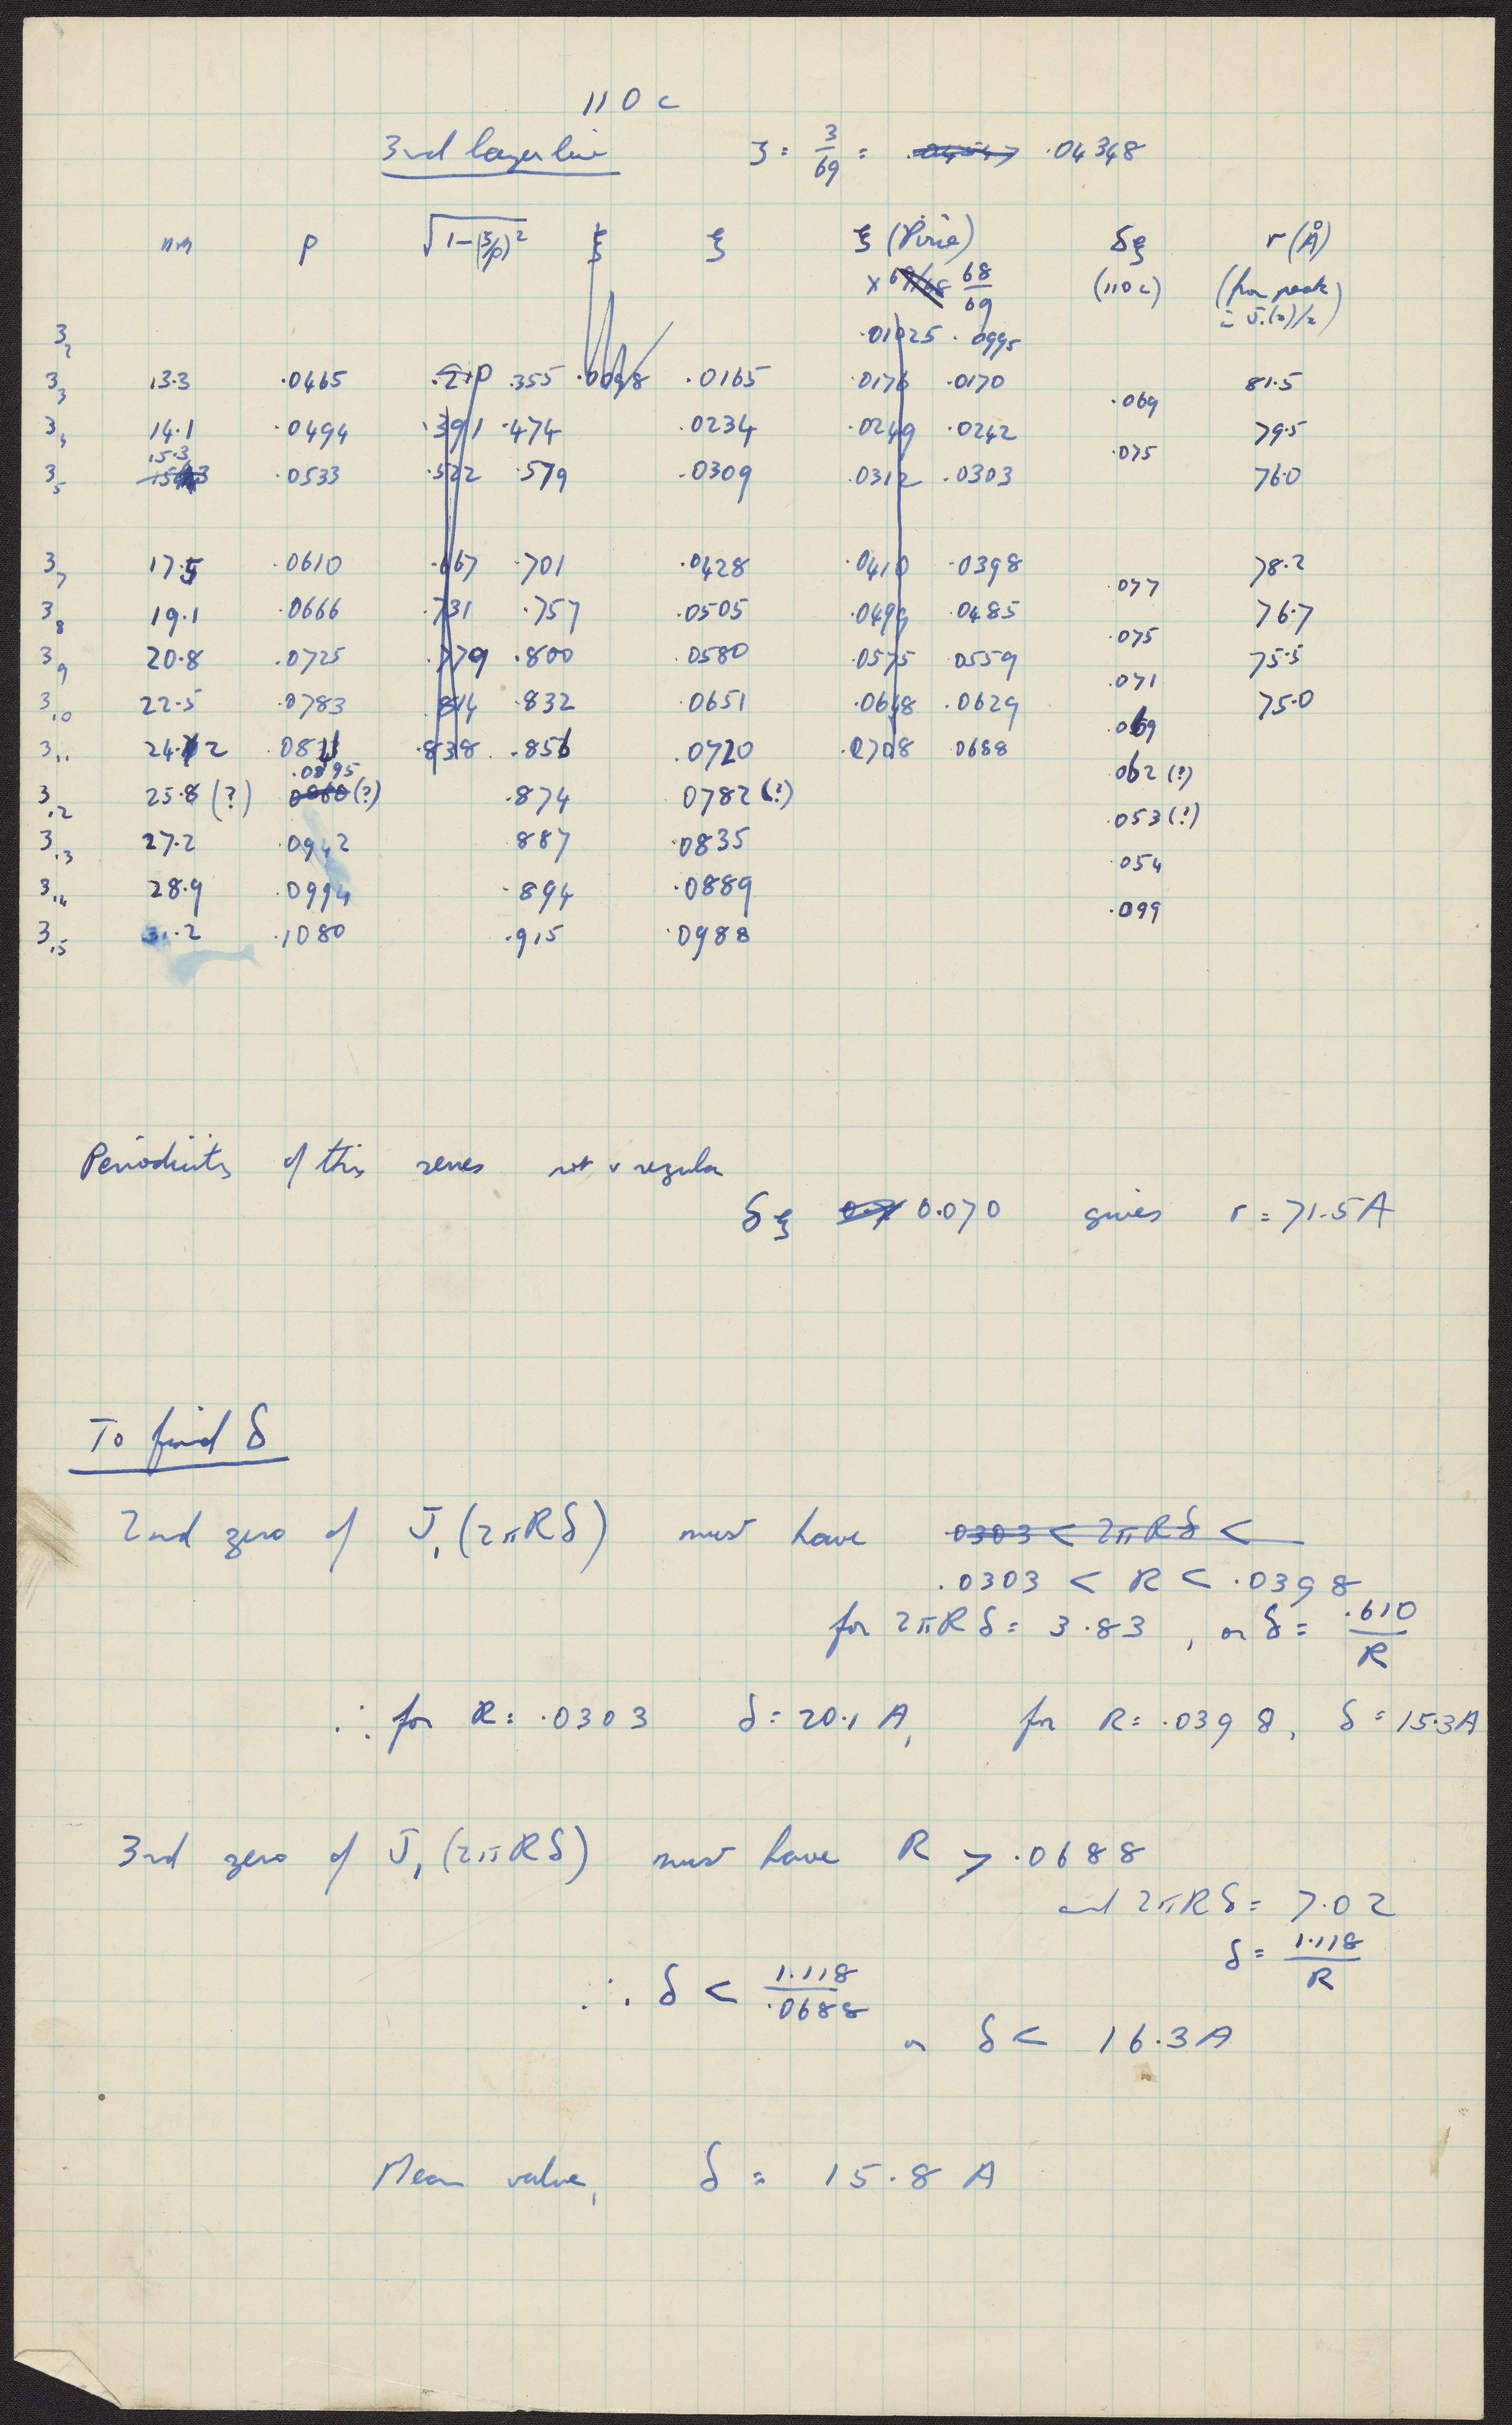 110c
3rd layer line ζ = 3/69 = .04348
mm ρ √1-(ζ/ρ)² ξ ξ ξ (Pirie) δξ r (Å)
x 69/68 68/69 (110c) (from peak
= J₁(x)/x)
3₂ .01025 .0995
3₃ 13.3 .0465 .355 .0098 .0165 .0176 .0170 81.5
.069
3₄ 14.1 .0494 .391 .474 .0234 .0249 .0242 79.5
15.3 .075
3₅ .0533 .522 .579 .0309 .0312 .0303 76.0
3₇ 17.5 .0610 .667 .701 .0428 .0410 .0398 78.2
.077
3₈ 19.1 .0666 .731 .757 .0505 .0499 .0485 76.7
.075
3₉ 20.8 .0725 .779 .800 .0580 .0575 .0559 75.5
.071
3₁₀ 22.5 .0783 .814 .832 .0651 .0648 .0629 75.0
.069
3₁₁ 24.2 .0841 .838 .856 .0720 .0708 .0688
.0895 .062 (?)
3₁₂ 25.8 (?) (?) .874 0782 (?)
.053 (?)
3₁₃ 27.2 .0942 .887 .0835
.054
3₁₄ 28.9 .0994 .894 .0889
.099
3₁₅ 31.2 .1080 .915 .0988
Periodicity of this series not v regular
δξ 0.070 gives r = 71.5 A
To find δ
2nd zero of J₁(2πRδ) must have .0303 < 2πRδ <
.0303 < R < .0398
for 2πRδ = 3.83 , or δ = .610/R
∴ for R = .0303 δ = 20.1 A, for R = .0398, δ = 15.3A
3rd zero of J₁(2πRδ) must have R > .0688
and 2πRδ = 7.02
δ = 1.118/R
∴ δ < 1.118/.0688
or δ < 16.3 A
Mean value, δ = 15.8 A